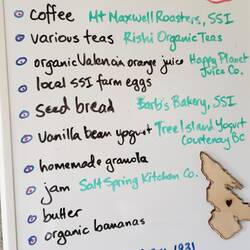 coffee Mt Maxwell Roasters, SSI
various teas Rishi Organic Teas
organic Valencia orange juice Happy Planet
Juice Co.
local SSI farm eggs
seed bread Barb's Bakery, SSI
vanilla bean yogurt Tree Island Yogurt
Courtenay BC
homemade granola
jam Salt Spring Kitchen Co.
butter
organic bananas